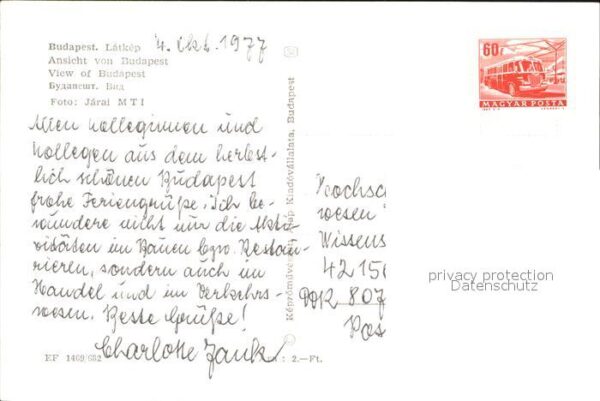 Budapest. Látkép
4. Okt. 1977
Ansicht von Budapest
View of Budapest
Будапешт. Вид
Foto: Járai MTI
Allen Kolleginnen und
Kollegen aus dem herbst-
lich schönen Budapest
frohe Feriengrüße. Ich be-
wundere nicht nur die Akti-
vitäten im Bauen bzw. Restau-
rieren, sondern auch im
Handel und im Verkehrs-
wesen. Beste Grüße!
Charlotte
EF 1469/682
: 2.—Ft.
Kiadóvállalata, Budapest
60f
MAGYAR POSTA
Hochsc
wesen
Wissens
42 15
DDR 807
Pos
privacy protection
Datenschutz